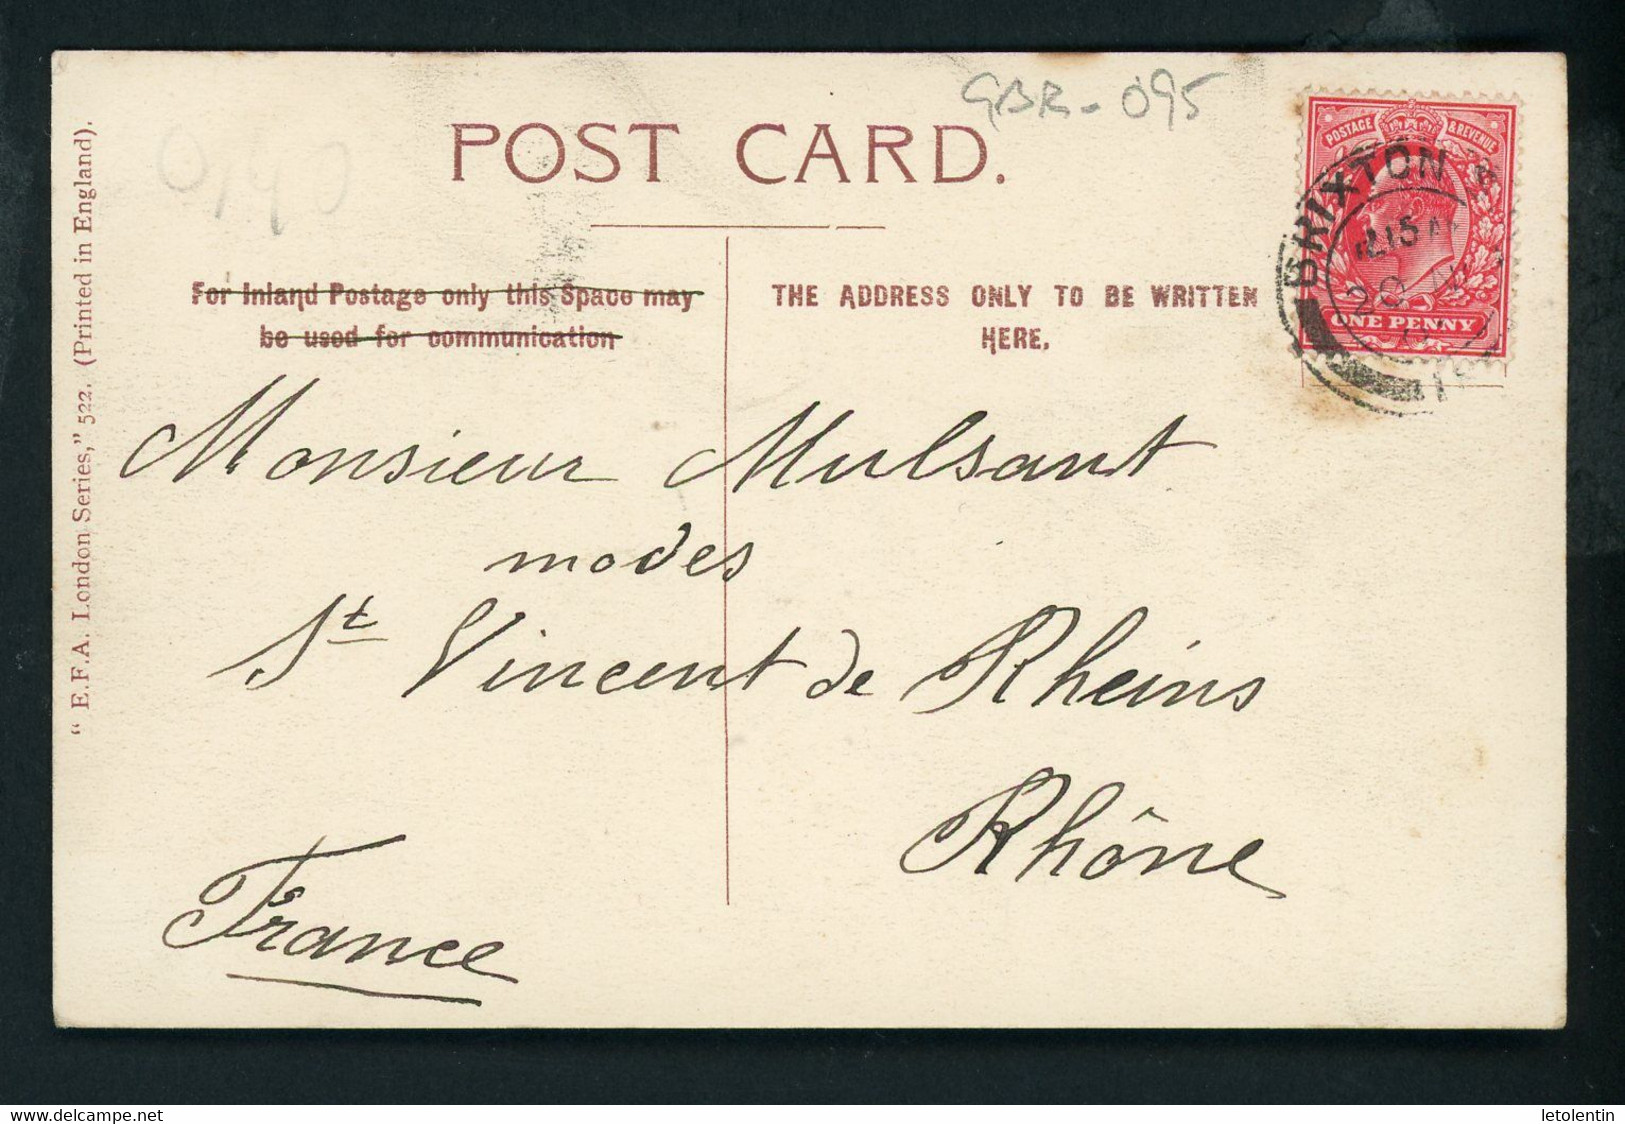 GBR-095
POST CARD.
POSTAGE & REVENUE
ONE PENNY
BRIXTON
12.15 AM
For Inland Postage only this Space may
be used for communication
THE ADDRESS ONLY TO BE WRITTEN
HERE.
"E.F.A. London Series," 522. (Printed in England).
Monsieur Mulsant
modes
St Vincent de Rheins
Rhône
France
www.delcampe.net
letolentin